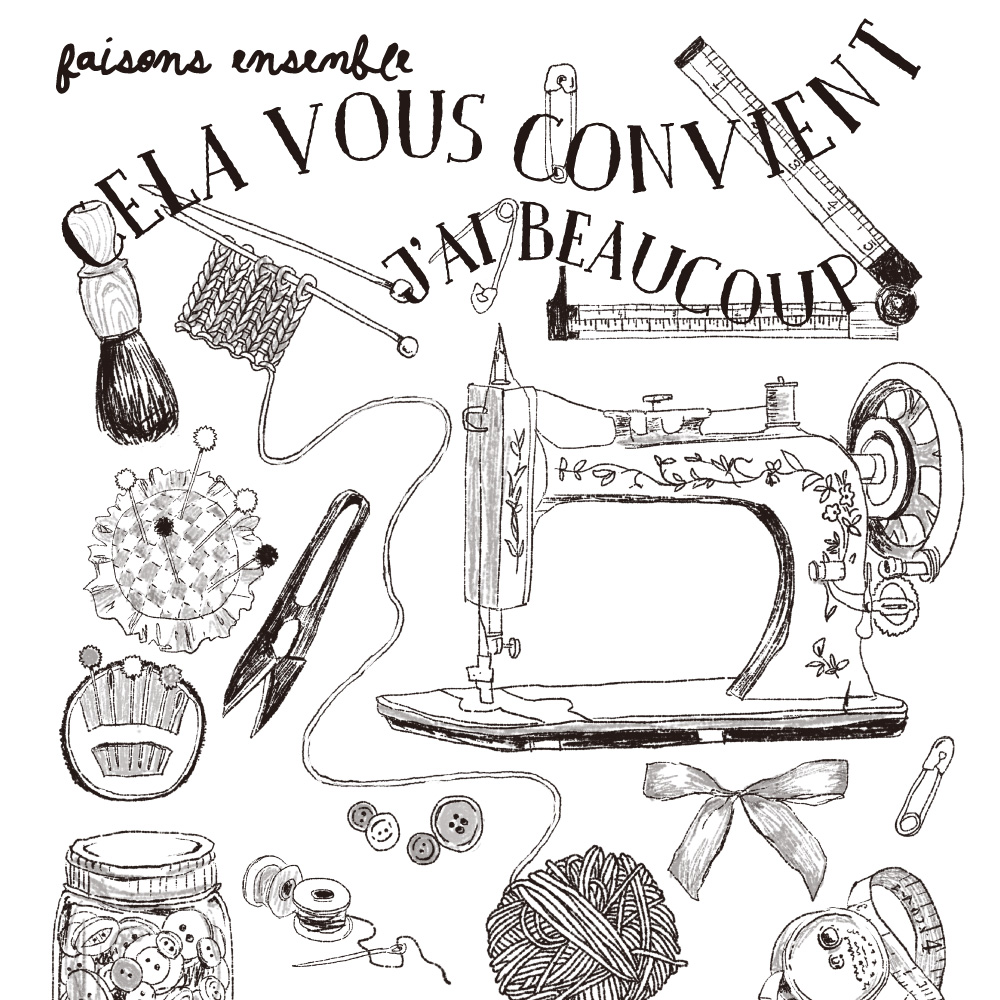 faisons ensemble
CELA VOUS CONVIENT
J'AI BEAUCOUP